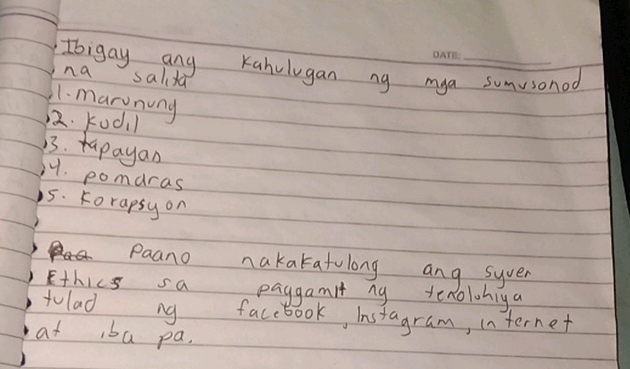 DATE:
Ibigay ang kahulugan ng mga sumusonod
na salita
1. marunung
2. kudil
3. tapayan
4. pomaras
5. korapsyon
Paano nakakatulong ang syver
Ethics sa paggamit ng tenolohiya
tulad ng facebook, Instagram, internet
at iba pa.